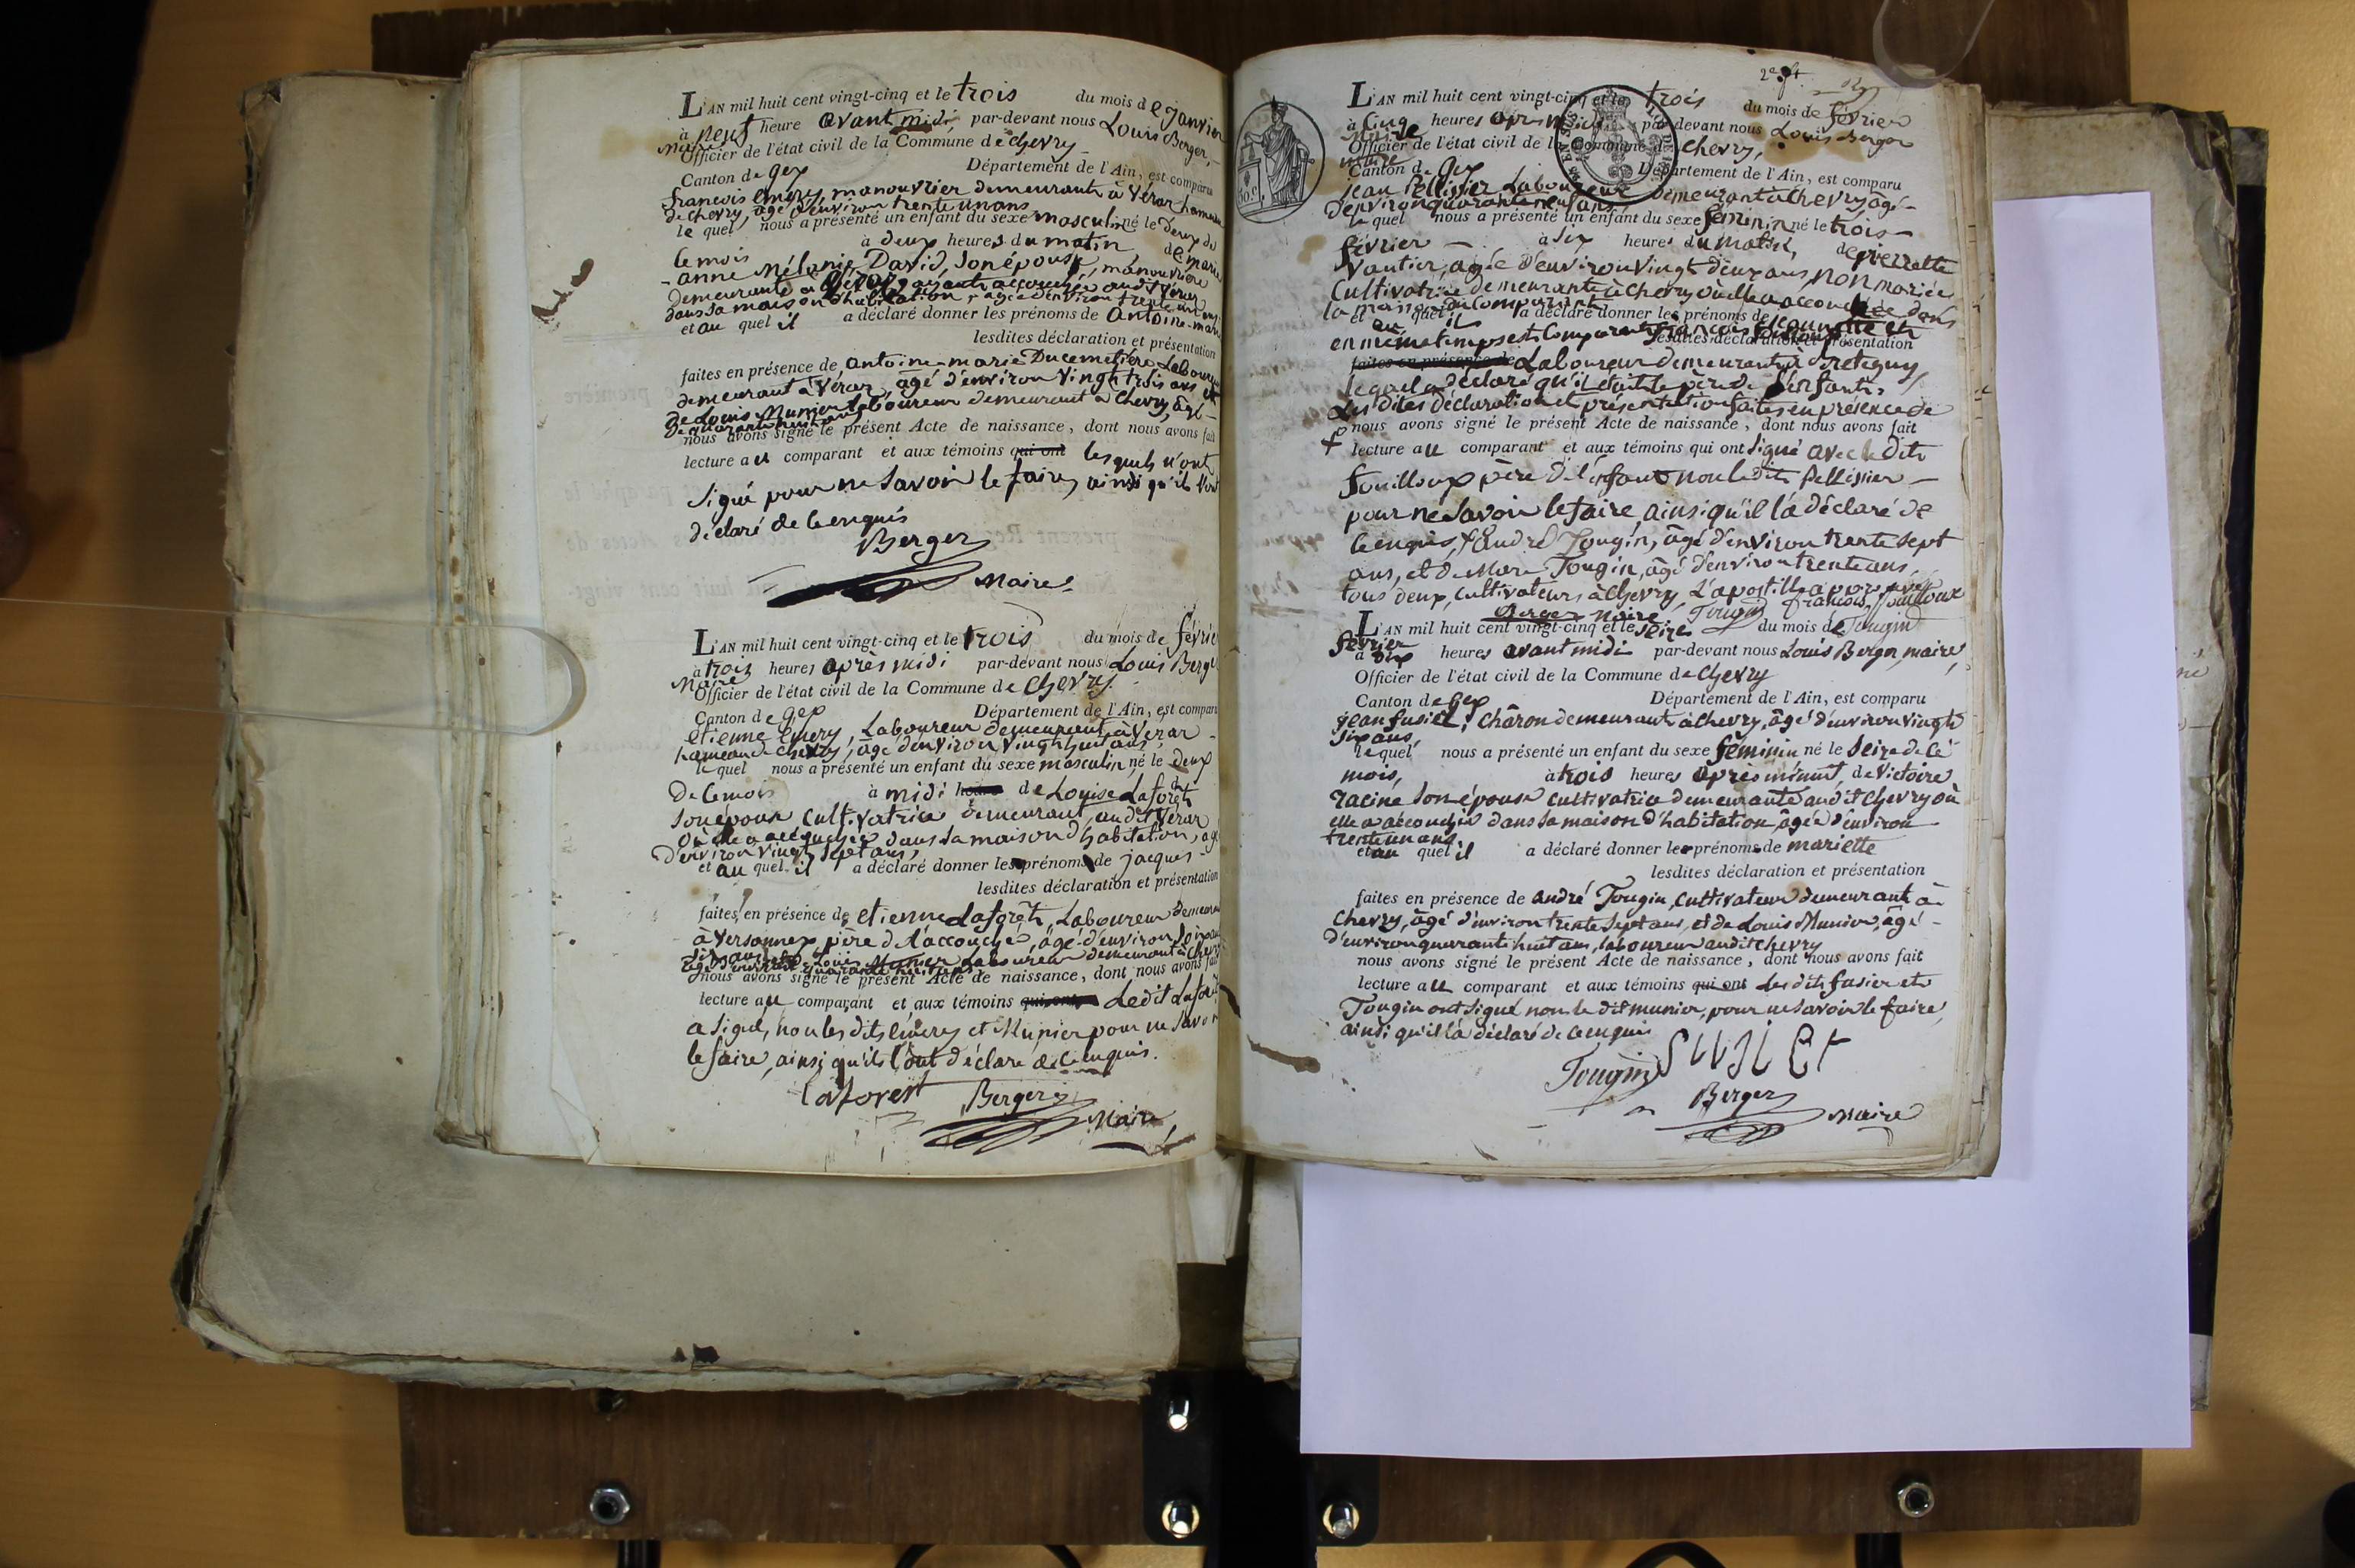 L'AN mil huit cent vingt-cinq et le trois du mois de janvier
à neuf heure avant midi, par-devant nous Louis Berger,
Maire
Officier de l'état civil de la Commune de Chevry
Canton de Gex Département de l'Ain, est comparu
francois Emery, manouvrier demeurant à Vérar hameau
de chevry, âgé d'environ trente un ans
le quel nous a présenté un enfant du sexe masculin né le deux du
ce mois à deux heures du matin de marie
anne Mélanie David, son épouse, manouvrière
demeurante à ayant accouchée audit Vérar
dans sa maison d'habitation, agée d'environ trente un ans
et au quel il a déclaré donner les prénoms de Antoine-marie
lesdites déclaration et présentation
faites en présence de Antoine-marie Ducemetière Laboureur
demeurant à Vérar, âgé d'environ vingt trois ans et
de Louis Munier laboureur demeurant à Chevry, âgé
de quarante huit ans
nous avons signé le présent Acte de naissance, dont nous avons fait
lecture au comparant et aux témoins qui ont lesquels n'ont
signé pour ne savoir le faire, ainsi qu'ils l'ont
déclaré de ce enquis
Berger
Maire
L'AN mil huit cent vingt-cinq et le trois du mois de févrie
à trois heures après midi par-devant nous Louis Berge
Maire
Officier de l'état civil de la Commune de Chevry.
Canton de Gex Département de l'Ain, est comparu
etienne Emery, Laboureur demeurant à Verar
hameau de chevry, âgé d'environ vingt huit ans
le quel nous a présenté un enfant du sexe masculin né le deux
de ce mois à midi heure de Louise Laforêt
son épouse cultivatrice demeurant audit Vérar
où elle a accouchée dans sa maison d'habitation, agé
d'environ vingt sept ans,
et au quel il a déclaré donner les prénoms de jacques
lesdites déclaration et présentation
faites en présence de etienne Laforêt, Laboureur demeurant
à Versonnex père de l'accouchée, âgé d'environ soixante
six ans et de Louis Munier Laboureur demeurant à Chevry
âgé d'environ quarante huit ans
nous avons signé le présent Acte de naissance, dont nous avons fait
lecture au comparant et aux témoins qui ont Ledit Laforêt
a signé, non les dits Emery et Munier pour ne savoir
le faire, ainsi qu'ils l'ont déclaré de ce enquis.
laforest Berger
Maire
2e ft
L'AN mil huit cent vingt-cinq et le trois du mois de février
à cinq heures après midi par-devant nous Louis Berger
Maire
Officier de l'état civil de la Commune de Chevry,
Canton de Gex Département de l'Ain, est comparu
jean Pellissier Laboureur demeurant à Chevry âgé
d'environ quarante neuf ans,
le quel nous a présenté un enfant du sexe féminin né le trois
février à six heures du matin, de pierrette
Vautier, agée d'environ vingt deux ans, non mariée
cultivatrice demeurante à Chevry où elle a accouchée dans
la maison du comparant
et au quel il a déclaré donner les prénoms de
en même temps est comparu francois
lesdites déclaration et présentation
faites en présence de Laboureur demeurant à Pretegny
lequel a déclaré qu'il était le père de l'enfant,
Les dites déclaration et présentation faites en présence de
nous avons signé le présent Acte de naissance, dont nous avons fait
lecture au comparant et aux témoins qui ont signé avec ledit
fouilloux père de l'enfant non ledit Pellissier
pour ne savoir le faire, ainsi qu'il l'a déclaré de
ce enquis, André Tougin, âgé d'environ trente sept
ans, et de Marc Tougin, âgé d'environ trente ans,
tous deux cultivateurs à Chevry. L'apostille approuvée
Berger Maire Tougin francois fouilloux
Tougin
L'AN mil huit cent vingt-cinq et le seize du mois de
février
à dix heures avant midi par-devant nous Louis Berger, maire,
Officier de l'état civil de la Commune de Chevry
Canton de Gex Département de l'Ain, est comparu
jean fusier, chàron demeurant à Chevry, âgé d'environ vingt
six ans,
le quel nous a présenté un enfant du sexe féminin né le seize de ce
mois, à trois heures après minuit, de Victoire
racine son épouse cultivatrice demeurante audit Chevry où
elle a accouchée dans sa maison d'habitation, âgée d'environ
trente un ans
et au quel il a déclaré donner les prénoms de mariette
lesdites déclaration et présentation
faites en présence de andré Tougin, cultivateur demeurant à
Chevry, âgé d'environ trente sept ans, et de Louis Munier, âgé
d'environ quarante huit ans, laboureur audit Chevry
nous avons signé le présent Acte de naissance, dont nous avons fait
lecture au comparant et aux témoins qui ont Lesdits fusier et
Tougin ont signé non le dit munier, pour ne savoir le faire,
ainsi qu'il l'a déclaré de ce enquis
Tougin
Berger
Maire